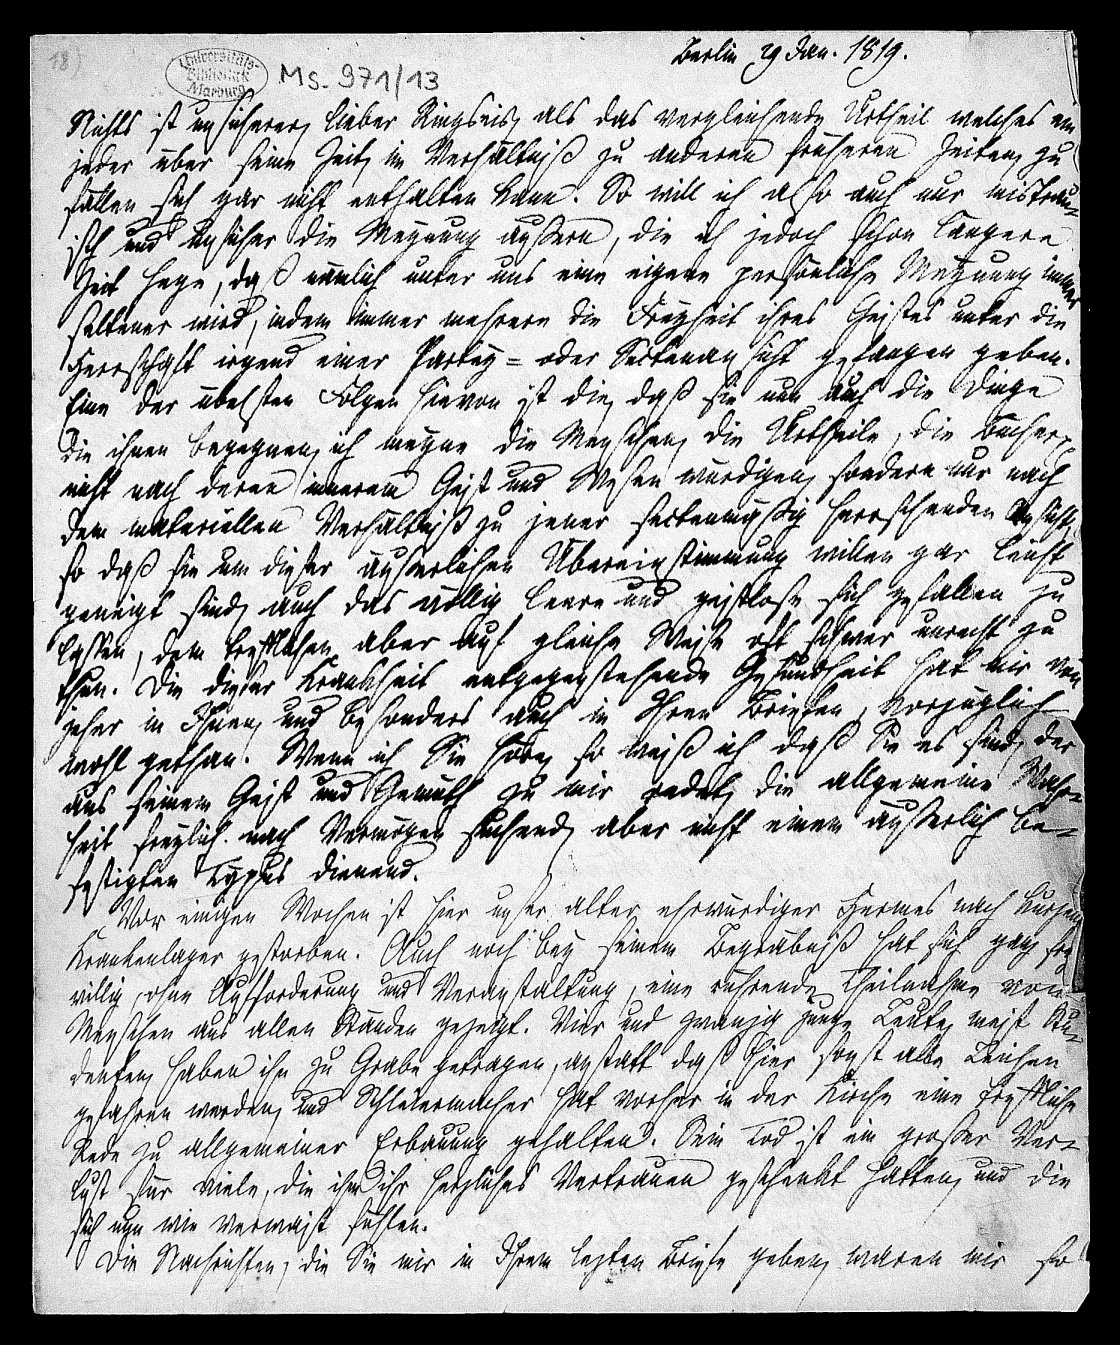 18)
Universitäts-
Bibliothek
Marburg
Ms. 971/13
Berlin 29 Jan. 1819.
Nichts ist unsicherer, lieber Ringseis, als das vergleichende Urtheil welches ein
jeder über seine Zeit, im Verhältniß zu anderen früheren Zeiten, zu
fällen sich gar nicht enthalten kann. So will ich also auch nur mistraui-
isch und unsicher die Meynung äußern, die ich jedoch schon längere
Zeit hege, daß nämlich unter uns eine eigene persönliche Meynung immer
seltener wird, indem immer mehrere die Freyheit ihres Geistes unter die
Herrschaft irgend einer Partey- oder Sectenansicht gefangen geben.
Eine der übelsten Folgen hievon ist die, daß sie nun auch die Dinge
die ihnen begegnen, ich meyne die Menschen, die Urtheile, die Bücher,
nicht nach deren innerem Geist und Wesen würdigen, sondern nur nach
dem materiellen Verhältniß zu jener sectenmäßig herrschenden Ansicht,
so daß sie um dieser äußerlichen Übereinstimmung willen gar leicht
geneigt sind, auch das völlig leere und geistlose sich gefallen zu
lassen, dem trefflichen aber auf gleiche Weise oft schwer unrecht zu
thun. Die dieser Krankheit entgegenstehende Gesundheit hat mir von
jeher in Ihnen, und besonders auch in Ihren Briefen, vorzüglich
wohl gethan. Wenn ich Sie höre, so weiß ich daß Sie es sind, der
aus seinem Geist und Gemüth zu mir redet, die allgemeine Wahr-
heit freylich nach Vermögen suchend, aber nicht einem äußerlich be-
festigten Typus dienend.
Vor einigen Wochen ist hier unser alter ehrwürdiger Hermes nach kurzem
Krankenlager gestorben. Auch noch bey seinem Begräbniß hat sich ganz frey
willig, ohne Aufforderung und Veranstaltung, eine rührende Theilnahme von
Menschen aus allen Ständen gezeigt. Vier und zwanzig junge Leute, meist Stu-
denten, haben ihn zu Grabe getragen, anstatt daß hier sonst alle Leichen
gefahren werden, und Schleiermacher hat vorher in der Kirche eine treffliche
Rede zu allgemeiner Erbauung gehalten. Sein Tod ist ein großer Ver-
lust für viele, die ihm ihr herzliches Vertrauen geschenkt hatten, und die
sich nun wie verwaist fühlen.
Die Nachrichten, die Sie mir in Ihrem letzten Briefe geben, waren mir so